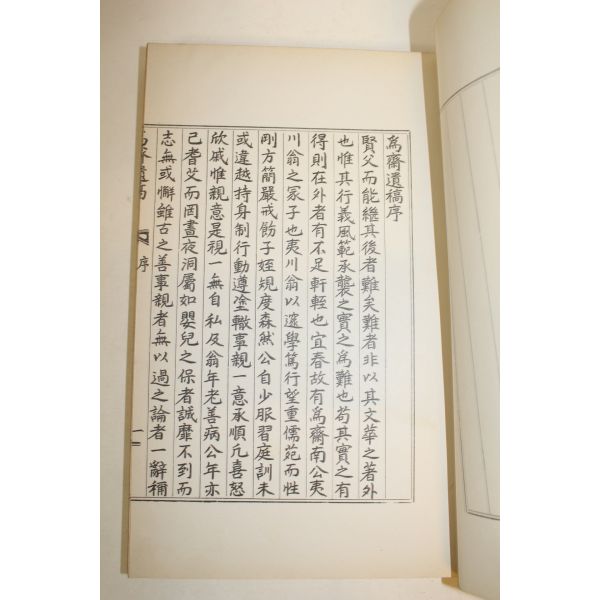 為齋遺稿序
賢父而能繼其後者難矣難者非以其文華之著外
也惟其行義風範承襲之實之為難也苟其實之有
得則在外者有不足軒輊也宜春故有為齋南公夷
川翁之冢子也夷川翁以邃學篤行望重儒苑而性
剛方簡嚴戒飭子姪規度森然公自少服習庭訓未
或違越持身制行動遵塗轍事親一意承順凢喜怒
欣戚惟親意是視一無自私及翁年老善病公年亦
己耆艾而罔晝夜洞屬如嬰兒之保者誠靡不到而
志無或懈雖古之善事親者無以過之論者一辭稱
為齋遺稿 序 一